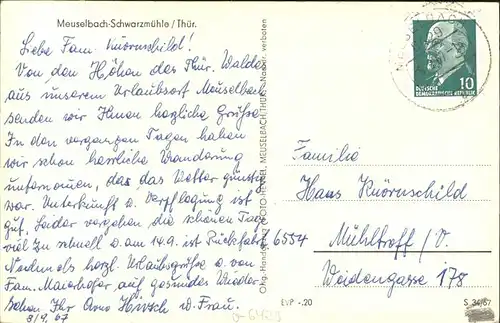 Meuselbach-Schwarzmühle / Thür.
Liebe Fam. Knörnschild!
Von den Höhen des Thür. Waldes
aus unserem Urlaubsort Meuselbach
senden wir Ihnen herzliche Grüße.
In den vergangen Tagen haben
wir schon herrliche Wanderung
unternomen, das das Wetter günstig
war. Unterkunft u. Verpflegung ist
gut. Leider vergehen die schönen Tage
viel zu schnell u. am 14.9. ist Rückfahrt
Nochmals herzl. Urlaubsgrüße u. von
Fam. Maierhofer auf gesundes Wieder
sehen Ihr Arno Hirsch u. Frau.
8/9. 67
FOTO-HENKEL, MEUSELBACH/THÜR. · Nachdr. verboten
10
DEUTSCHE
DEMOKRATISCHE REPUBLIK
Familie
Hans Knörnschild
6554
Mühltroff / V.
Weidengasse 178
EVP -.20
S 34/67